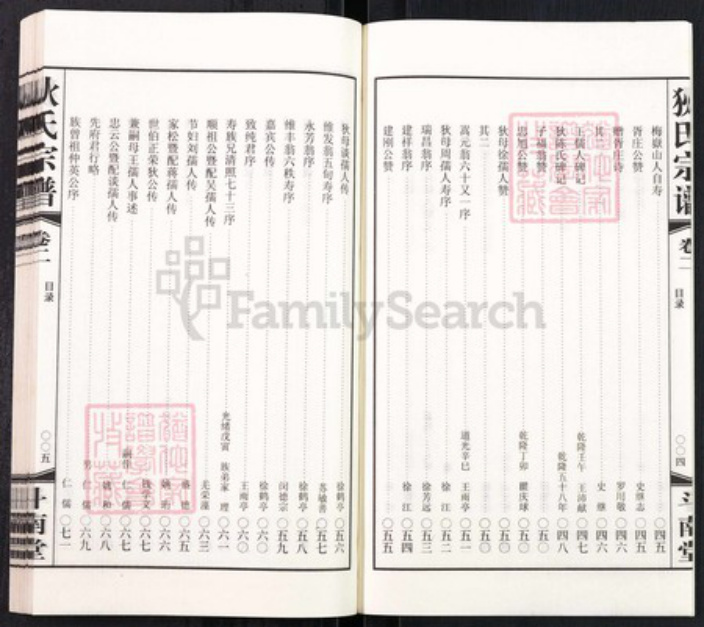 狄氏宗谱
卷二
目录
〇〇四
斗南堂
梅嶽山人自寿 〇四五
胥庄公赞 史继志 〇四五
赠胥庄诗 罗川敬 〇四六
其二 史继 〇四六
王孺人碑记 乾隆壬午 王沛献 〇四七
狄陈氏碑记 乾隆五十八年 〇四八
子福翁赞 〇五〇
思旭公赞 乾隆丁卯 瞿庆球 〇五〇
狄母徐孺人赞 〇五〇
其二 〇五〇
嵩元翁六十又一序 道光辛巳 王雨亭 〇五一
狄母周孺人寿序 徐江 〇五二
瑞昌翁序 徐芳远 〇五三
建祥翁序 徐江 〇五四
建刚公赞 〇五五
狄母谈孺人传 徐鹤亭 〇五六
维发翁五旬寿序 苏敏善 〇五七
永芳翁序 徐鹤亭 〇五八
维丰翁六秩寿序 闵德宗 〇五九
嘉宾公传 徐鹤亭 〇六〇
致纯君序 王雨亭 〇六〇
寿族兄清照七十三序 光绪戊寅 族弟家理 〇六一
顺祖公暨配吴孺人传 羌荣藻 〇六三
节妇刘孺人传 〇六五
家松公暨配蒋孺人传 〇六六
世伯正荣狄公传 钱学文 〇六六
兼嗣母王孺人事述 嗣侄 仁儒 〇六七
忠云公暨配谈孺人传 姚松 〇六八
先府君行略 男 仁儒 〇六九
族曾祖仲英公序 仁儒 〇七一
狄氏宗谱
卷二
目录
〇〇五
斗南堂
FamilySearch